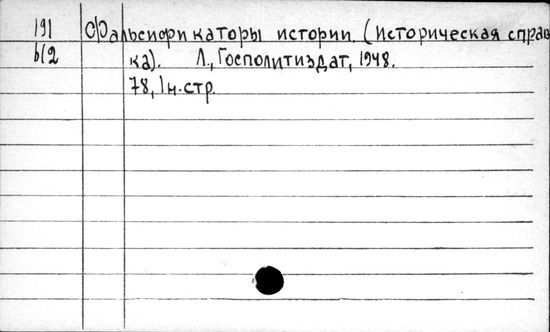 191 Фальсификаторы истории. (Историческая справ
б/2 ка). Л., Госполитиздат, 1948.
78, 1 н. стр.